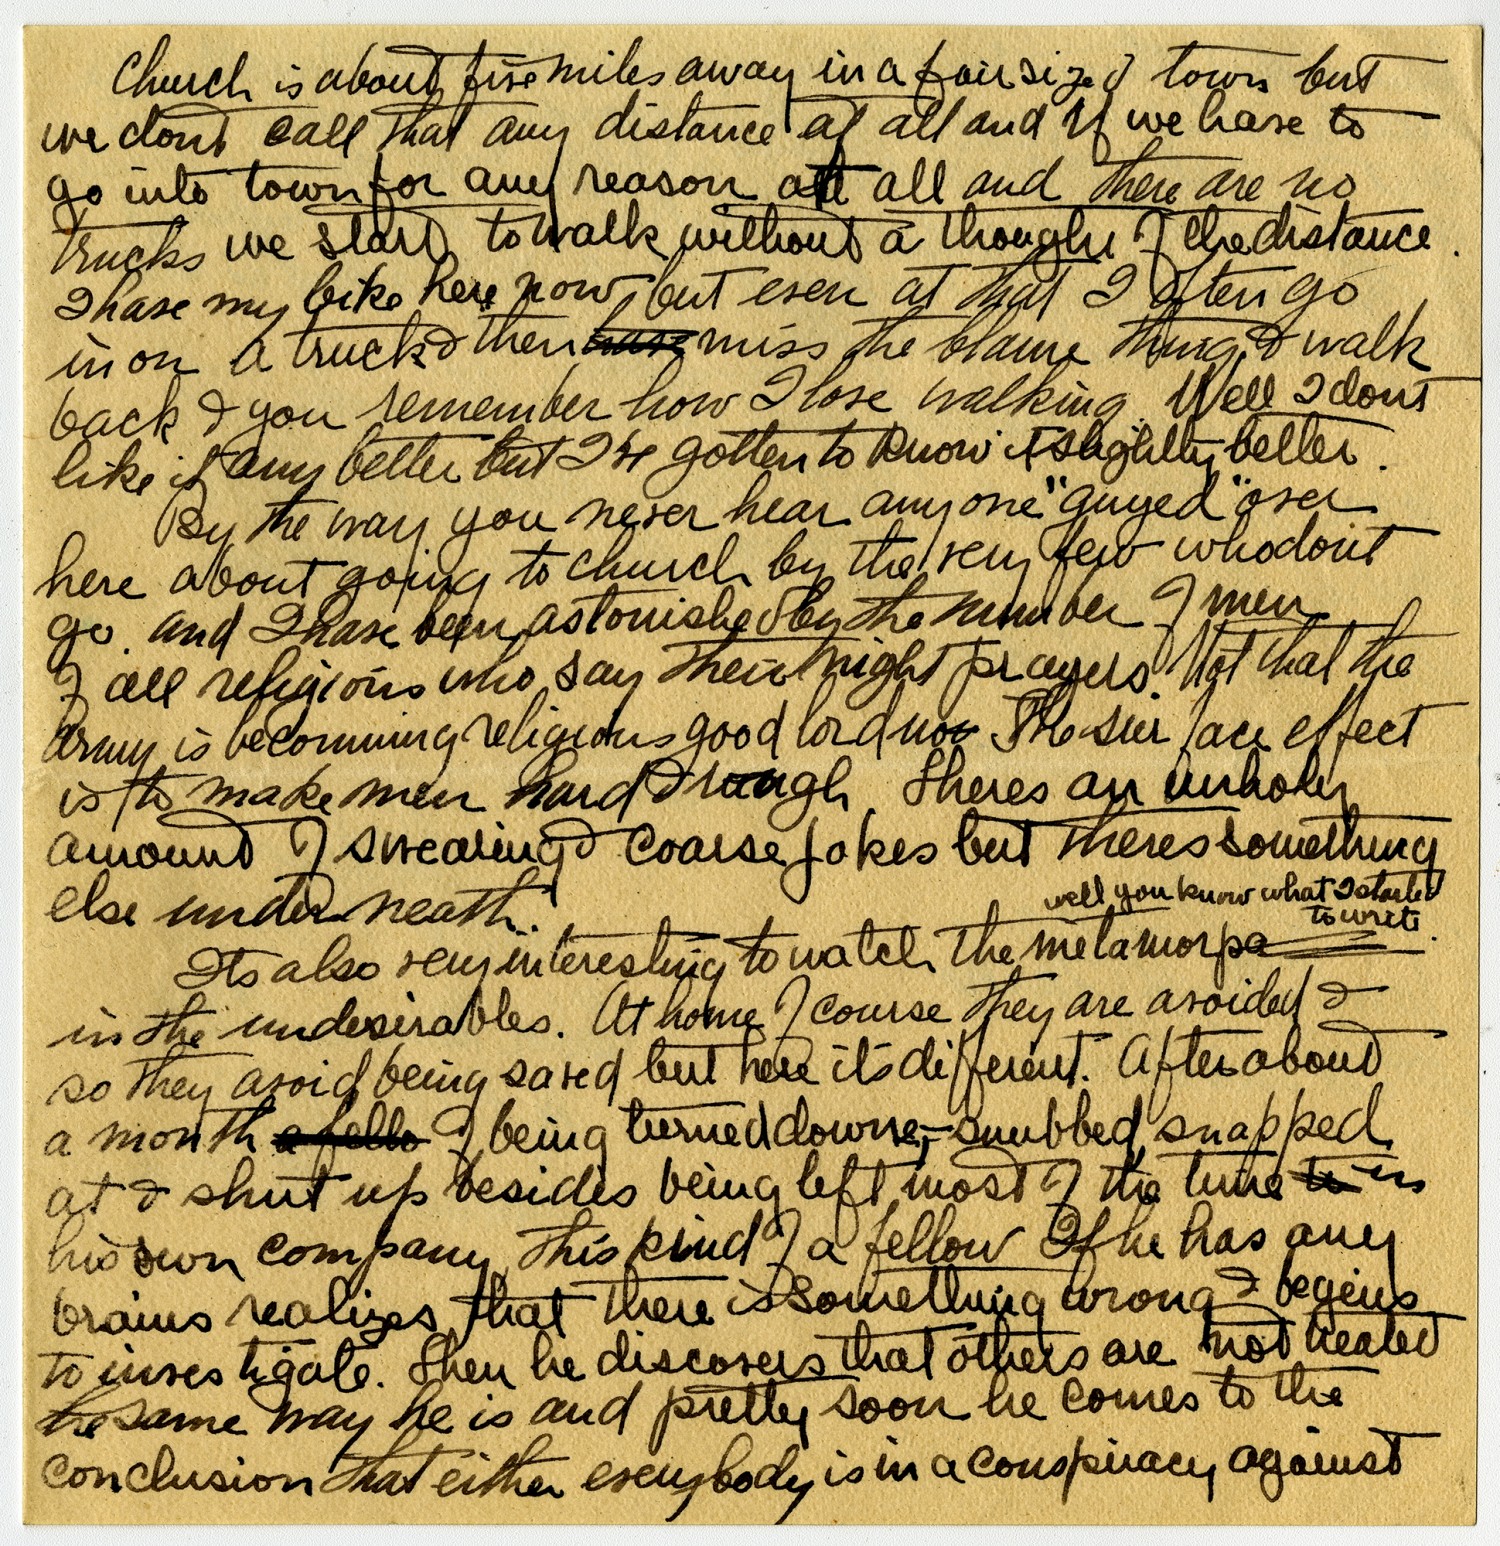 Church is about five miles away in a fair sized town but
we dont call that any distance at all and If we have to
go into town for any reason at all and there are no
trucks we start to walk without a thought of the distance.
I have my bike here now, but even at that I often go
in on a truck & then have miss the blame thing & walk
back & you remember how I love walking. Well I dont
like it any better but I've gotten to know it slightly better.
By the way you never hear anyone "guyed" over
here about going to church by the very few who dont
go. and I have been astonished by the number of men
of all religions who say their night prayers. Not that the
Army is becomming religious good lord no The sur face effect
is to make men hard & rough. Theres an unholy
amount of swearing & coarse jokes but theres something
else under neath.
well you know what I started
to write.
Its also very interesting to watch the metamorpa
in the undesirables. At home of course they are avoided &
so they avoid being saved but here it's different. After about
a month a fello of being turned downe, snubbed, snapped
at & shut up besides being left most of the time to in
his own company this kind of a fellow If he has any
brains realizes that there is something wrong & begins
to investigate. Then he discovers that others are not treated
the same way he is and pretty soon he comes to the
conclusion that either everybody is in a conspiracy against